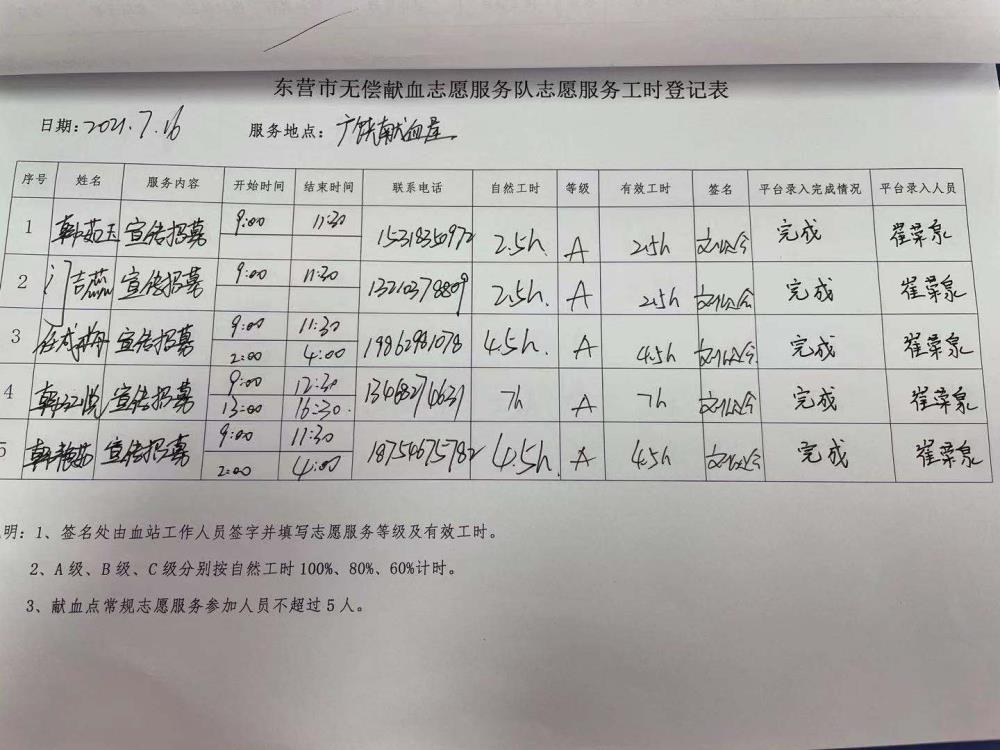 东营市无偿献血志愿服务队志愿服务工时登记表
日期:2021.7.16 服务地点:广饶献血屋
序号 姓名 服务内容 开始时间 结束时间 联系电话 自然工时 等级 有效工时 签名 平台录入完成情况 平台录入人员
1 韩茹玉 宣传招募 9:00 11:30 15318350972 2.5h A 2.5h 完成 崔荣泉
2 吉燕 宣传招募 9:00 11:30 13210378809 2.5h. A 2.5h 完成 崔荣泉
3 宣传招募 9:00 11:30 19862981078 4.5h. A 4.5h 完成 崔荣泉
2:00 4:00
4 韩江悦 宣传招募 9:00 12:30 13468274631 7h A 7h 完成 崔荣泉
13:00 16:30.
5 宣传招募 9:00 11:30 18754675782 4.5h. A 4.5h 完成 崔荣泉
2:00 4:00
明：1、签名处由血站工作人员签字并填写志愿服务等级及有效工时。
2、A级、B级、C级分别按自然工时100%、80%、60%计时。
3、献血点常规志愿服务参加人员不超过5人。